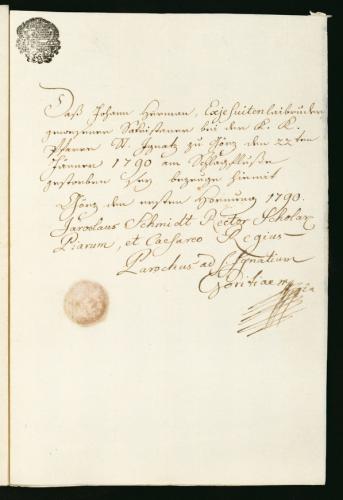 Daß Johann Herman, Exjesuitenlaibruder
gewesener Sakristaner bei der K. K.
Pfarre St. Ignatz zu Görz den 22ten
Jänner 1790 am Schlagfluße
gestorben sey bezeuge hiemit
Görz den ersten Hornung 1790.
Jaroslaus Schmidt Rector Scholar
Piarum, et Caesareo Regius
Parochus ad S. Ignatium
Goritiae